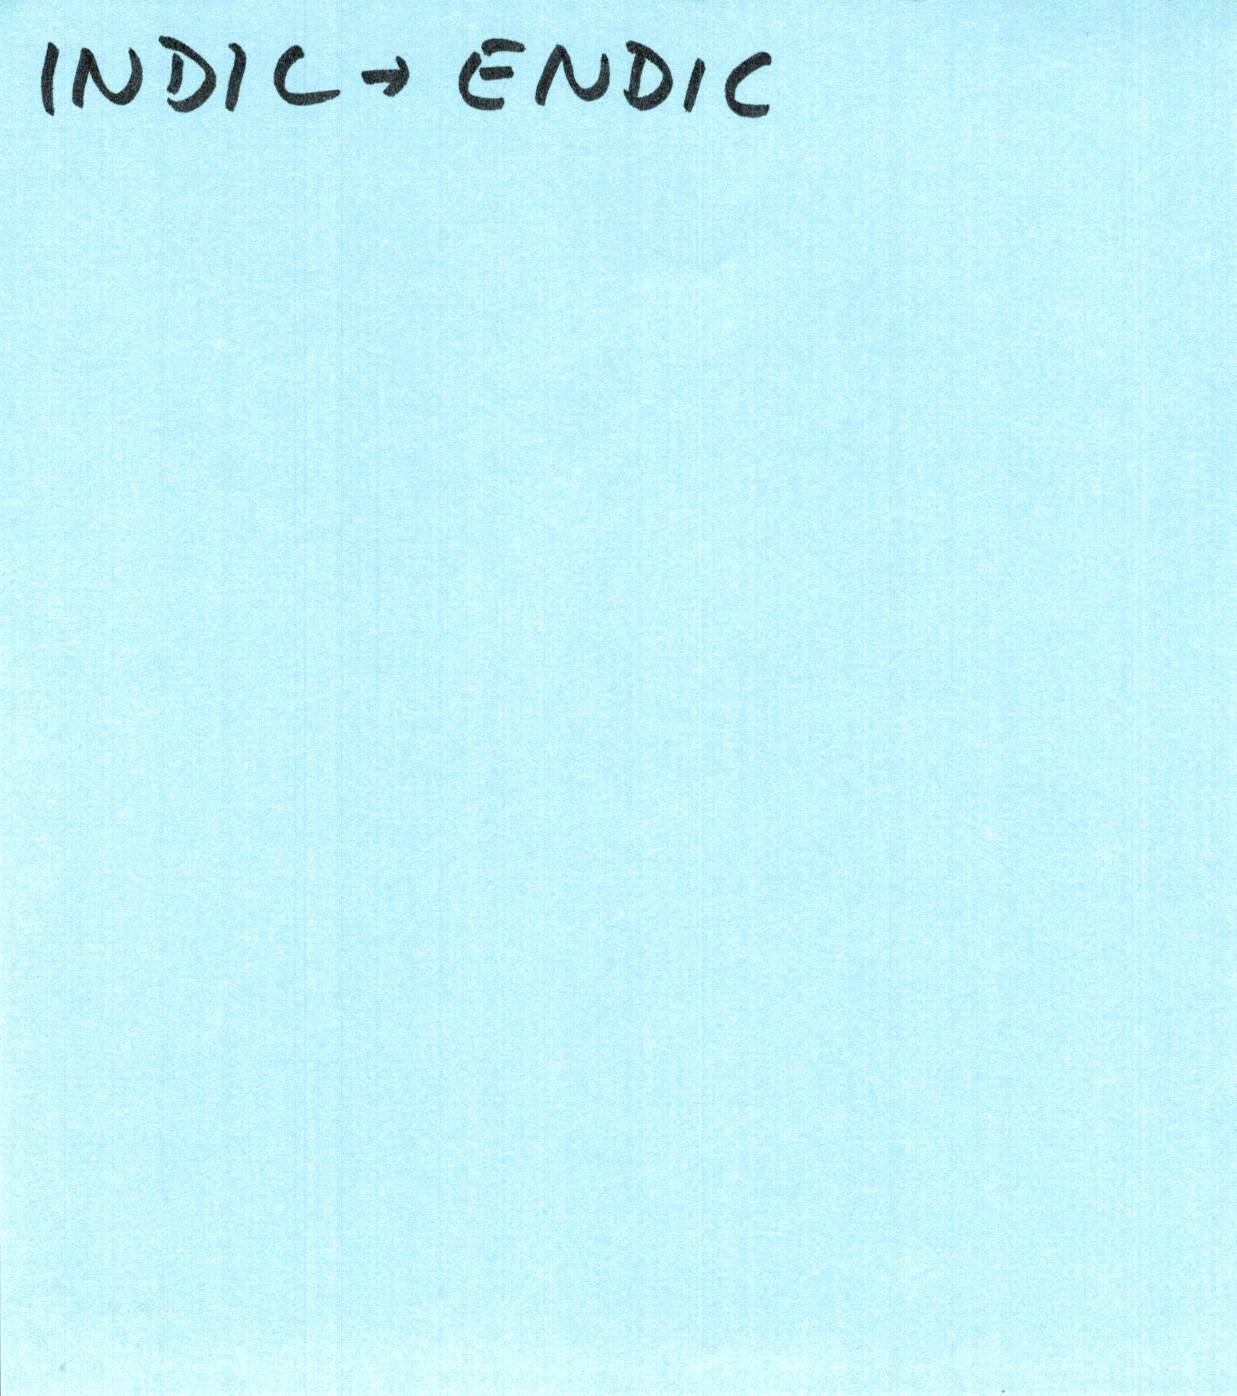 INDIC → ENDIC